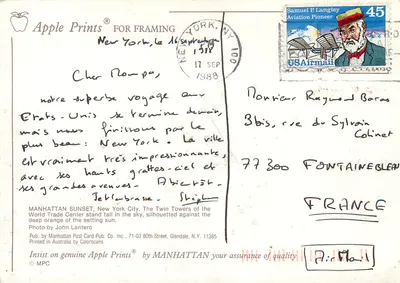 Apple Prints® FOR FRAMING
New York, le 16 septembre
NEW YORK, NY 100
17 SEP
1988
Samuel P. Langley
Aviation Pioneer
45
USAirmail
Cher Mon
notre superbe voyage aux
Etats-Unis se termine demain,
mais nous finissons par le
plus beau: New York. La ville
est vraiment très impressionnante,
avec ses hauts grattes-ciel et
ses grandes avenues. A bientôt.
Je t'embrasse. Stéph
Monsieur Raymond Baras
3bis, rue du Sylvain
Colinet
77300 FONTAINEBLEAU
FRANCE
Air Mail
MANHATTAN SUNSET, New York City, The Twin Towers of the
World Trade Center stand tall in the sky, silhouetted against the
deep orange of the setting sun.
Photo by John Lantero
Pub. by Manhattan Post Card Pub. Co. Inc., 71-03 80th Street, Glendale, N.Y. 11385
Printed in Australia by Colorscans
Insist on genuine Apple Prints® by MANHATTAN your assurance of quality.
© MPC